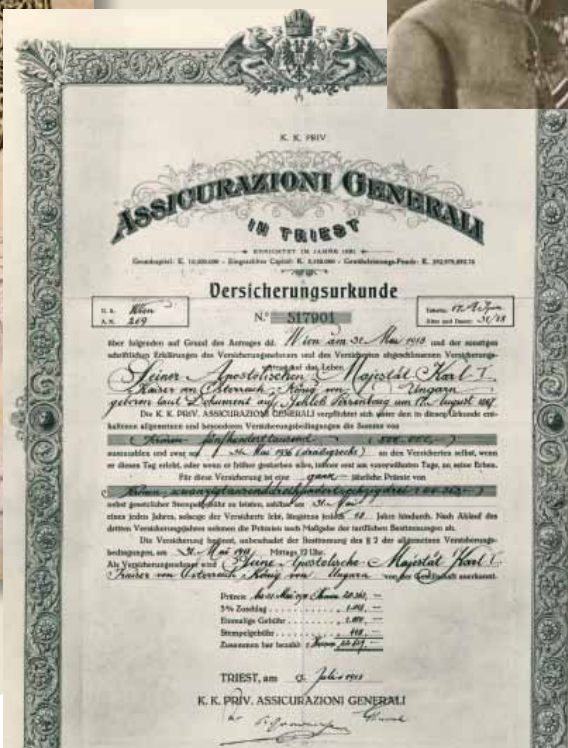 K. K. PRIV.
ASSICURAZIONI GENERALI
IN TRIEST
ERRICHTET IM JAHRE 1831
Versicherungsurkunde
U. A. Wien
A. N. 269
N.º 317901
über folgenden auf Grund des Antrages dd. Wien am 31. Mai 1918 und der sonstigen
schriftlichen Erklärungen des Versicherungsnehmers und des Versicherten abgeschlossenen Versicherungs-
Seiner Apostolischen Majestät Karl I.
Kaiser von Österreich, König von Ungarn
geboren laut Dokument auf Schloß Persenbeug am 17. August 1887
Die K. K. PRIV. ASSICURAZIONI GENERALI verpflichtet sich unter den in dieser Urkunde ent-
haltenen allgemeinen und besonderen Versicherungsbedingungen die Summe von
Kronen fünfhunderttausend (500.000,-)
auszuzahlen und zwar am 31. Mai 1936 an den Versicherten selbst, wenn
er diesen Tag erlebt, oder wenn er früher gestorben wäre, immer erst am vorerwähnten Tage, an seine Erben.
Für diese Versicherung ist eine ganz- jährliche Prämie von
nebst gesetzlicher Stempelgebühr zu leisten, zahlbar am 31. Mai
eines jeden Jahres, solange der Versicherte lebt, längstens jedoch 18 Jahre hindurch. Nach Ablauf des
dritten Versicherungsjahres nehmen die Prämien nach Maßgabe der tariflichen Bestimmungen ab.
Die Versicherung beginnt, unbeschadet der Bestimmung des § 2 der allgemeinen Versicherungs-
bedingungen, am 31. Mai 1918 Mittags 12 Uhr.
Als Versicherungsnehmer wird Seine Apostolische Majestät Karl I.
Kaiser von Österreich, König von Ungarn von der Gesellschaft anerkannt.
Prämie
5% Zuschlag
Einmalige Gebühr
Stempelgebühr
Zusammen bar bezahlt
TRIEST, am
K. K. PRIV. ASSICURAZIONI GENERALI